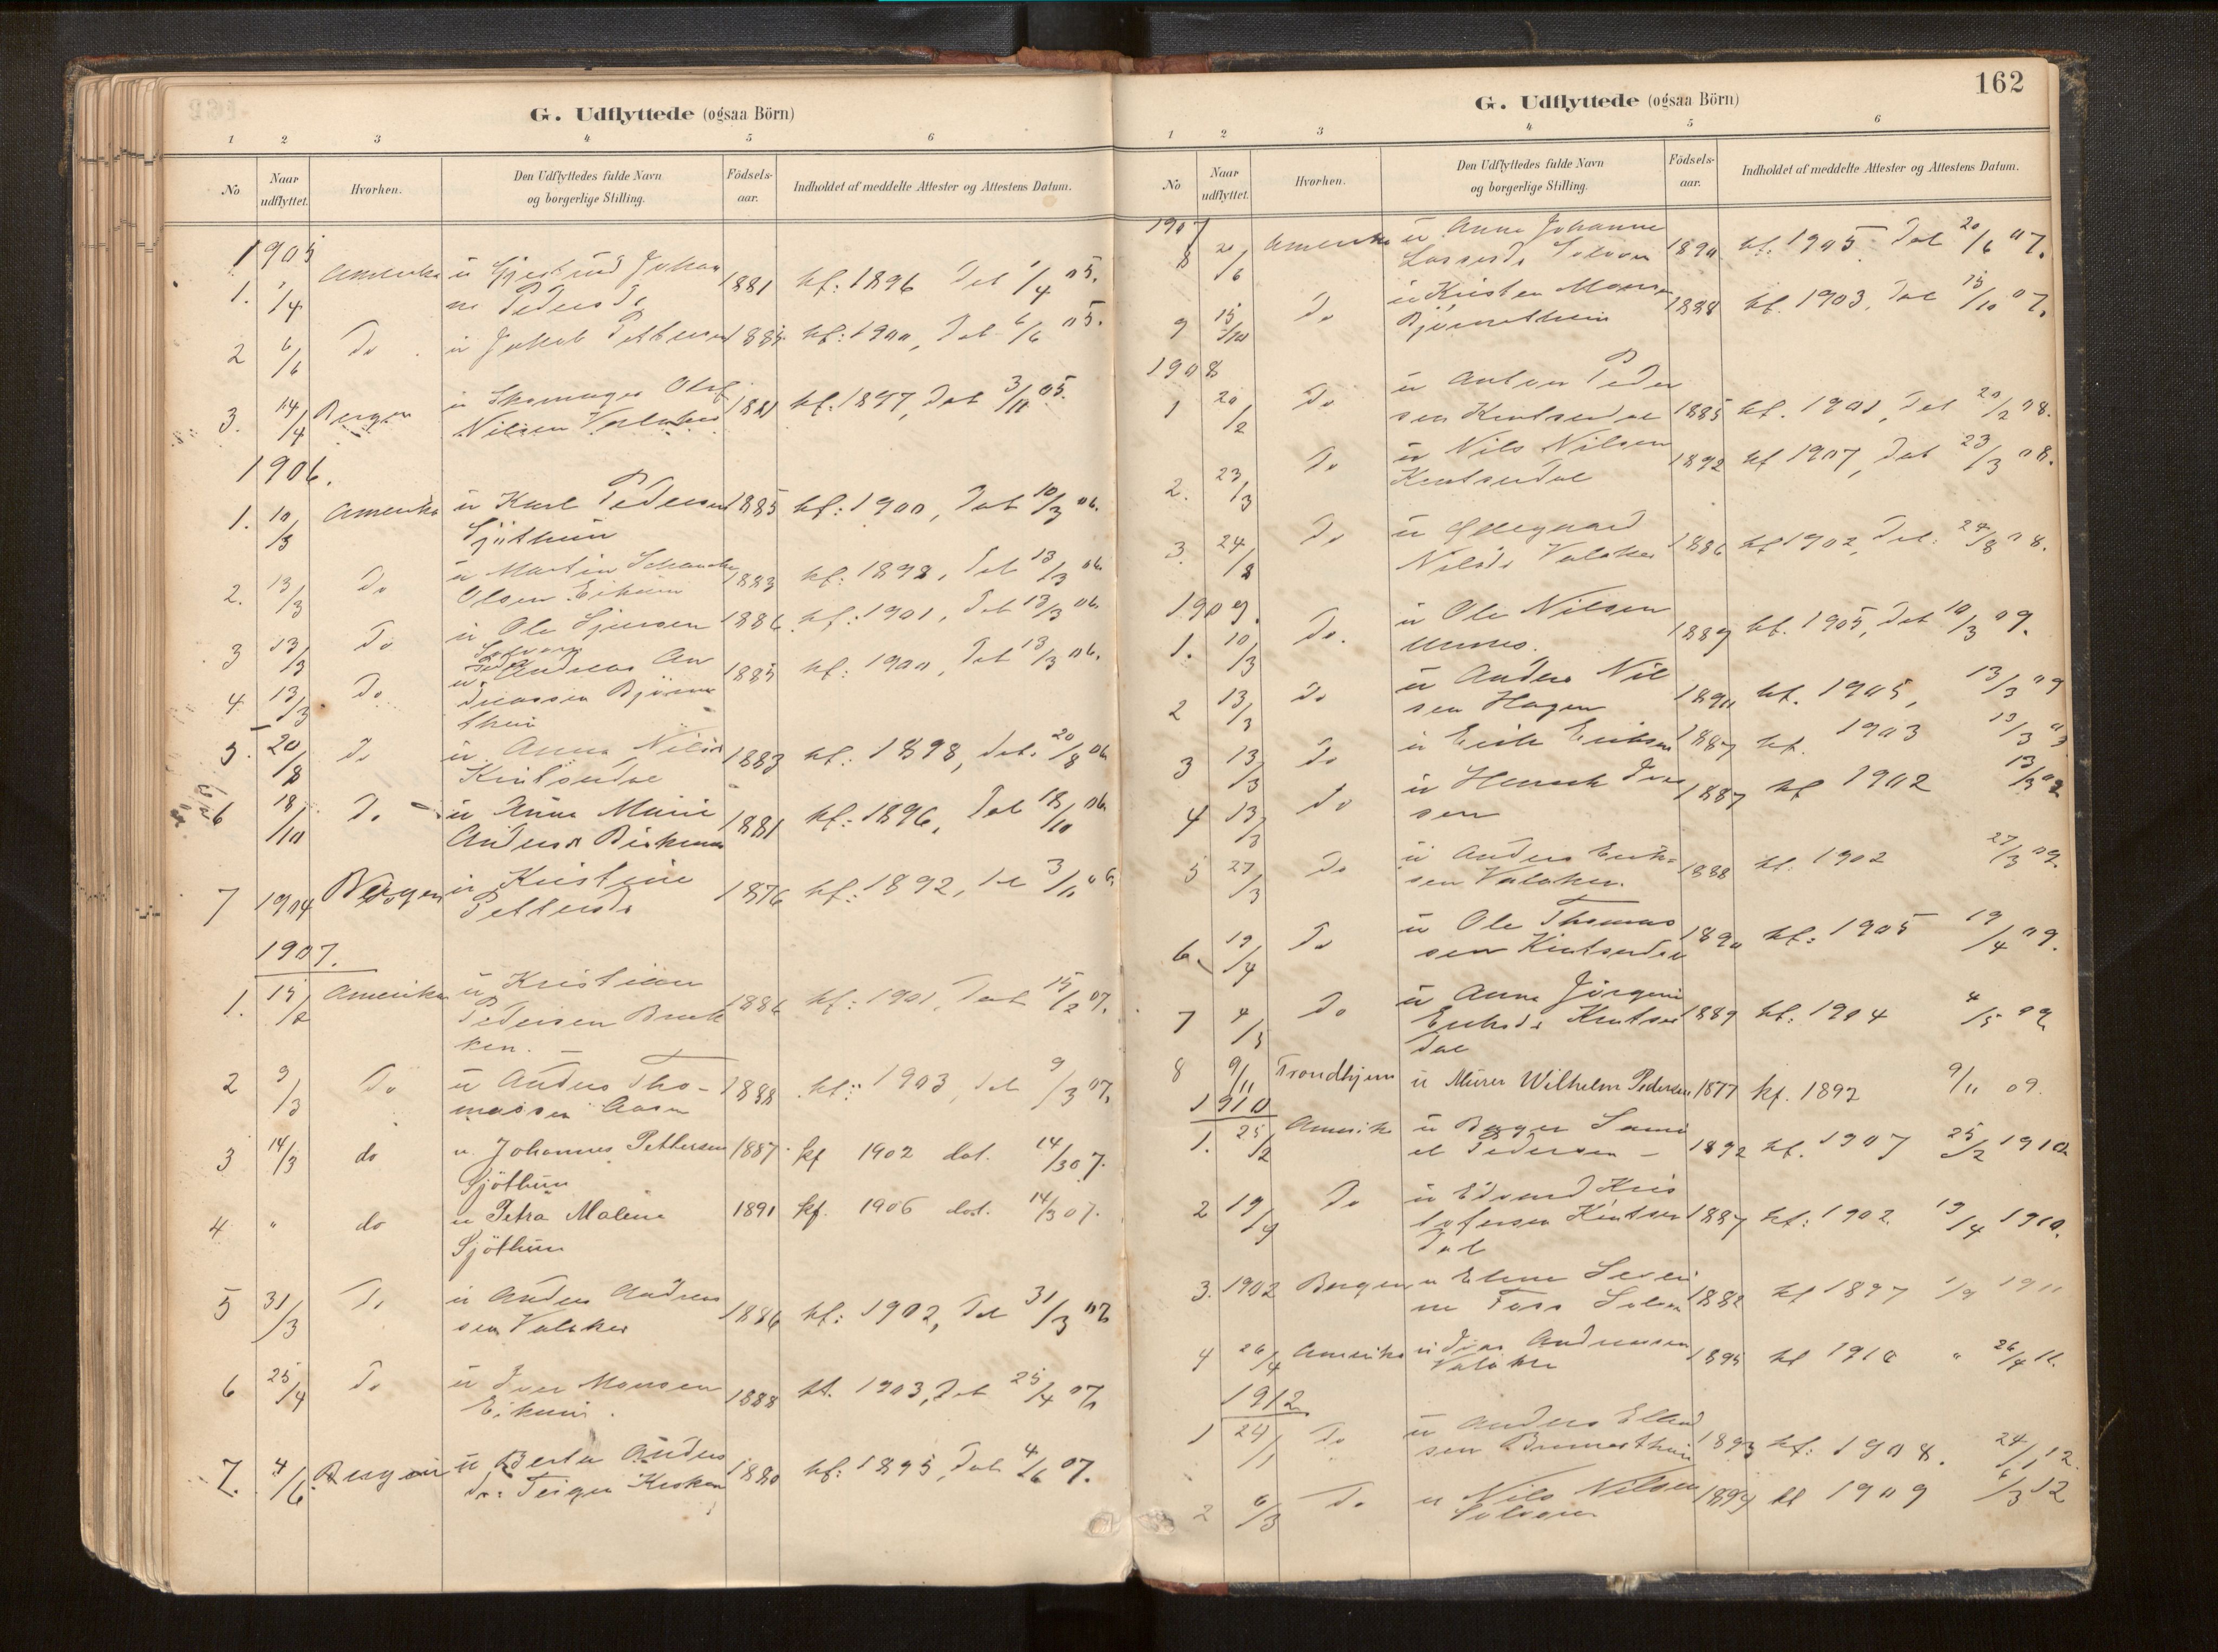 G. Udflyttede (ogsaa Börn)
1 2 3 4 5 6
No Naar udflyttet. Hvorhen. Den Udflyttedes fulde Navn og borgerlige Stilling. Födsels-aar. Indholdet af meddelte Attester og Attestens Datum.
1905
1. 1/4 Amerika u Johan 1881 kf: 1896 Dat 1/4 05.
ne Pedersdr
2 6/6 Do u Jakob Pettersen 1885 kf: 1900, Dat 6/6 05.
3. 14/4 Bergen u Skomager Oluf 1881 kf. 1897, Dat 3/11 05.
Nilsen
1906.
1. 10/3 Amerika u Karl Pedersen 1885 kf: 1900, Dat 10/3 06.
Sjöthun
2. 13/3 Do u Martin 1883 kf: 1898, Dat 13/3 06
Olsen Eikum
3 13/3 Do u Ole Sjursen 1886 kf: 1901, Dat 13/3 06
4 13/3 Do u Andreas An 1885 kf: 1900, Dat 13/3 06.
dreassen Björne
thun
5. 20/8 Do u Anna Nilsdr 1883 kf: 1898, dat. 20/8 06
6 18/10 Do u Anna Marie 1881 kf: 1896, Dat 18/10 06
Andersdr
7 1904 Bergen u Kristine 1876 kf: 1892, 3/11 06
Pettersdr
1907.
1. 15/2 Amerika u Kristian 1886 kf: 1901, Dat 15/2 07.
Pedersen Brek
ken.
2 9/3 Do u Anders Tho- 1888 kf: 1903, Dat 9/3 07.
massen
3 14/3 do u. Johannes Pettersen 1887 kf 1902 dat. 14/3 07.
Sjöthun
4 " do u Petra Malene 1891 kf. 1906 dat. 14/3 07.
Sjöthun
5 31/3 Do u Anders Andreas 1886 kf: 1902, Dat 31/3 07
sen Valaker
6 25/4 Do u Iver Monsen 1888 kf. 1903, Dat 25/4 07
Eikum.
7. 4/6 Bergen u Berta Anders 1880 kf: 1895, Dat 4/6 07.
dr.
162
G. Udflyttede (ogsaa Börn)
1 2 3 4 5 6
No Naar udflyttet. Hvorhen. Den Udflyttedes fulde Navn og borgerlige Stilling. Födsels-aar. Indholdet af meddelte Attester og Attestens Datum.
1907
8 20/6 Amerika u Anna Johanne 1890 kf. 1905. Dat 20/6 07.
Lassesdr Solvorn
9 15/10 Do u Kristen Mons 1888 kf. 1903, Dat 15/10 07.
Björnethun
1908
1 20/2 Do u Anton Peder 1885 kf. 1901, Dat 20/2 08.
sen Kintsedal
2. 23/3 Do u Nils Nilsen 1892 kf 1907, Dat 23/3 08.
Kintsedal
3. 24/8 Do u Øllegaard 1886 kf 1902, Dat. 24/8 08.
Nilsdr Valaker
1909.
1. 10/3 Do. u Ole Nilsen 1889 kf. 1905, Dat 10/3 09.
Unnes.
2 13/3 Do u Anders Nil 1890 kf. 1905, 13/3 09
sen Hagen
3 13/3 Do u Erik Eriksen 1887 kf. 1903 13/3 09
4 13/3 Do u Henrik Iver 1887 kf 1902 13/3 09
sen
5 27/3 Do u Anders Erik= 1888 kf. 1902 27/3 09.
sen Valaker.
6. 19/4 Do u Ole Thomas 1890 kf: 1905 19/4 09.
sen Kintsedal
7 4/5 Do u Anna Jörgine 1889 kf: 1904 4/5 09.
Eriksdr Kintse
dal
8 9/11 Trondhjem u Murer Wilhelm Pedersen 1877 kf. 1892 9/11 09.
1910
1. 25/2 Amerika u Birger Samu 1892 kf. 1907 25/2 1910
el Pedersen –
2 19/4 Do u Edvard Kris 1887 kf: 1902. 19/4 1910.
tofersen Kintse
dal
3. 1902 Bergen u Elene Severi 1882 kf 1897 1/9 1911
ne Foss
4 26/4 Amerika u Ivar Andreassen 1895 kf 1910 " 26/4 11.
Valaker
1912
1 24/1 Do u Anders Ellend 1893 kf: 1908. 24/1 12.
sen
2 6/3 Do u Nils Nilsen 1894 kf 1909 6/3 12
Solvorn